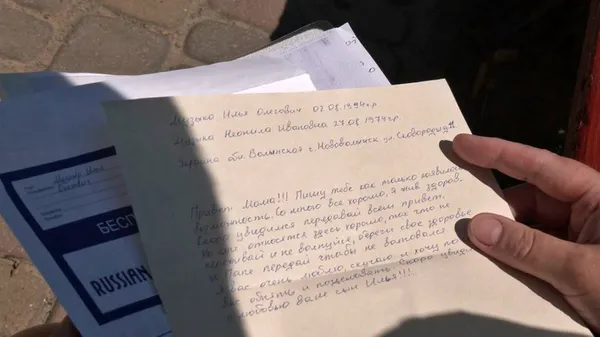 Музыко Илья Олегович 02.08.1994г.р
Музыка Неонила Ивановна 27.08.1974г.р.
Украина обл Волынская г. Нововолынск ул Сковороды
Привет Мама!!! Пишу тебе как только появилась
возможность. Со мною все хорошо, я жив здоров.
Скоро увидимся передавай всем привет,
Ко мне относятся здесь хорошо, так что не
переживай и не волнуйся, береги свое здоровье
и Папе передай чтобы не волновался
Я вас очень люблю, скучаю и хочу
Вас обнять и поцеловать. Скоро
с любовью Ваш сын Илья!!!
БЕСП
RUSSIAN